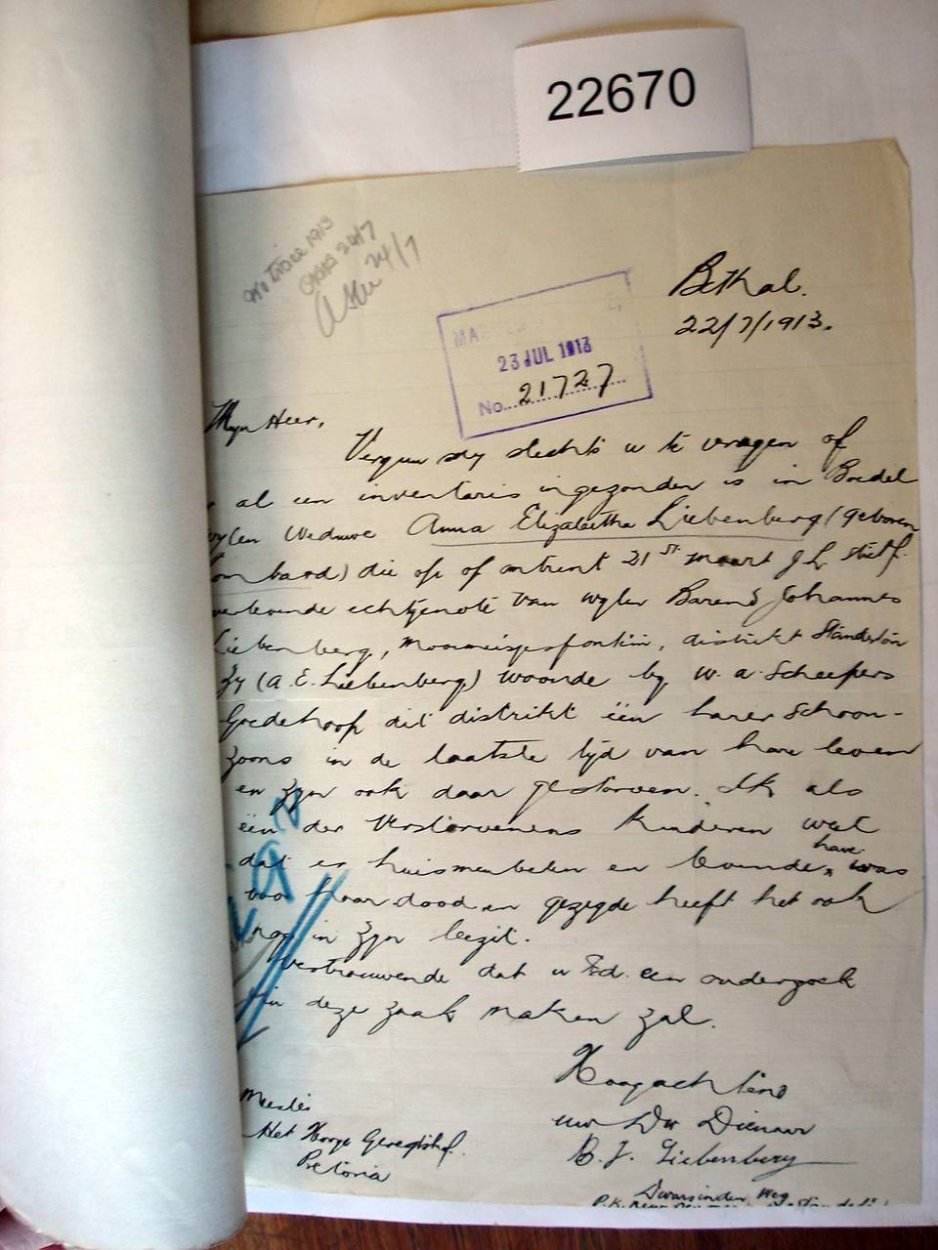 22670
24/7
Bethal.
22/7/1913.
23 JUL 1913
No. 21727
Myn Heer,
Vergun my slechts u te vragen of
al een inventaris ingezonden is in Boedel
wylen Weduwe Anna Elizabetha Liebenberg (geboren
die op of omtrent 21st maart j.l. stierf.
echtgenote van wylen Barend Johannes
Liebenberg, distrikt Standerton
Zy (A. E. Liebenberg) woonde by W. A. Scheepers
Goedehoop dit distrikt één harer Schoon-
zoons in de laatste tyd van hare leven
en zyn ook daar gestorven. Ik als
één der Verstorvenens Kinderen weet
dat er huismeubelen en hare was
voor Haar dood en gezegde heeft het ook
nog in zyn bezit.
Vertrouwende dat u Ed. een onderzoek
in deze zaak maken zal.
Hoogachtend
uw Dw Dienaar
B. J. Liebenberg
Meester
Het Hooge Geregtshof.
Pretoria
Dwarsindeweg